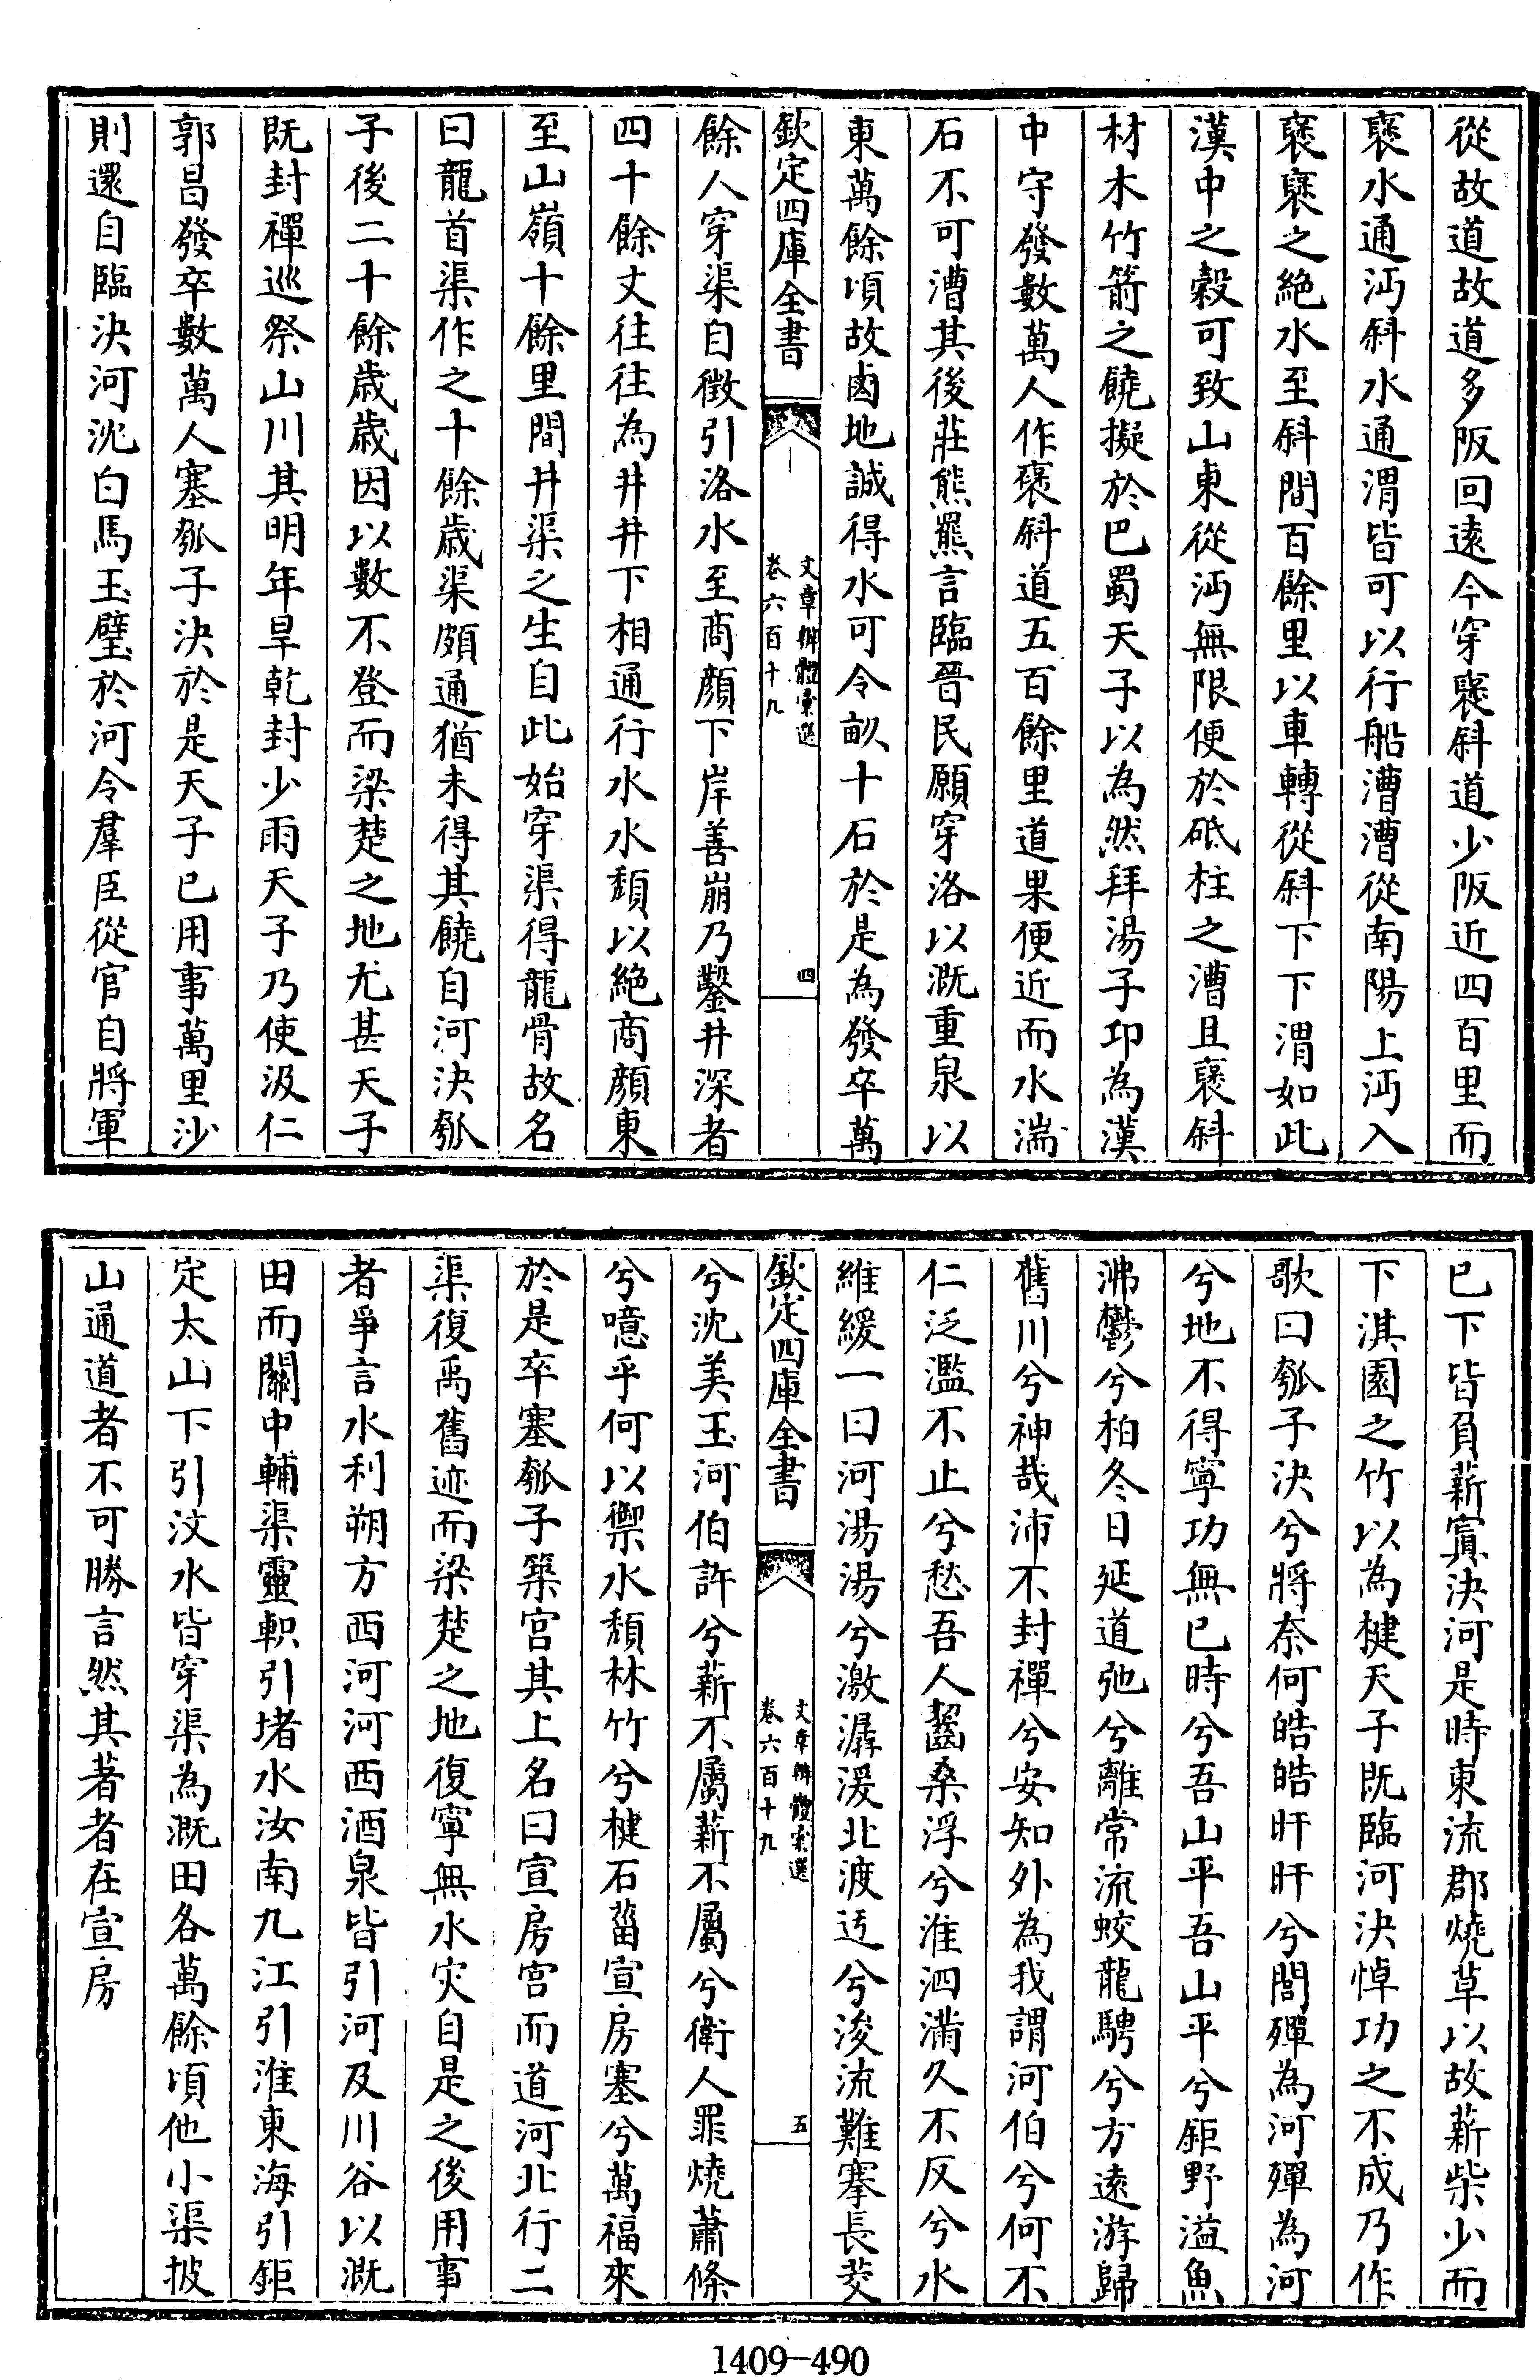 從故道故道多阪回逺今穿褒斜道少阪近四百里而
褒水通沔斜水通渭皆可以行船漕漕從南陽上沔入
褒褒之絶水至斜間百餘里以車轉從斜下下渭如此
漢中之穀可致山東從沔無限便於砥柱之漕且褒斜
材木竹箭之饒擬於巴蜀天子以為然拜湯子卬為漢
中守發數萬人作褒斜道五百餘里道果便近而水湍
石不可漕其後莊熊羆言臨晉民願穿洛以溉重泉以
東萬餘頃故鹵地誠得水可令畝十石於是為發卒萬
欽定四庫全書
文章辨體彙選
卷六百十九
四
餘人穿渠自徵引洛水至商顔下岸善崩乃鑿井深者
四十餘丈往往為井井下相通行水水頽以絶商顔東
至山嶺十餘里間井渠之生自此始穿渠得龍骨故名
曰龍首渠作之十餘歲渠頗通猶未得其饒自河決瓠
子後二十餘歲歲因以數不登而梁楚之地尤甚天子
既封禪巡祭山川其明年旱乾封少雨天子乃使汲仁
郭昌發卒數萬人塞瓠子決於是天子已用事萬里沙
則還自臨決河沈白馬玉璧於河令羣臣從官自將軍
已下皆負薪窴決河是時東流郡燒草以故薪柴少而
下淇園之竹以為楗天子既臨河決悼功之不成乃作
歌曰瓠子決兮將奈何皓皓旰旰兮閭殫為河殫為河
兮地不得寧功無已時兮吾山平吾山平兮鉅野溢魚
沸鬱兮柏冬日延道弛兮離常流蛟龍騁兮方遠游歸
舊川兮神哉沛不封禪兮安知外為我謂河伯兮何不
仁泛濫不止兮愁吾人齧桑浮兮淮泗滿久不反兮水
維緩一曰河湯湯兮激潺湲北渡迂兮浚流難搴長茭
欽定四庫全書
文章辨體彙選
卷六百十九
五
兮沈美玉河伯許兮薪不屬薪不屬兮衛人罪燒蕭條
兮噫乎何以禦水頽林竹兮楗石菑宣房塞兮萬福來
於是卒塞瓠子築宫其上名曰宣房宫而道河北行二
渠復禹舊迹而梁楚之地復寧無水灾自是之後用事
者爭言水利朔方西河河西酒泉皆引河及川谷以溉
田而關中輔渠靈軹引堵水汝南九江引淮東海引鉅
定太山下引汶水皆穿渠為溉田各萬餘頃他小渠披
山通道者不可勝言然其著者在宣房
1409-490